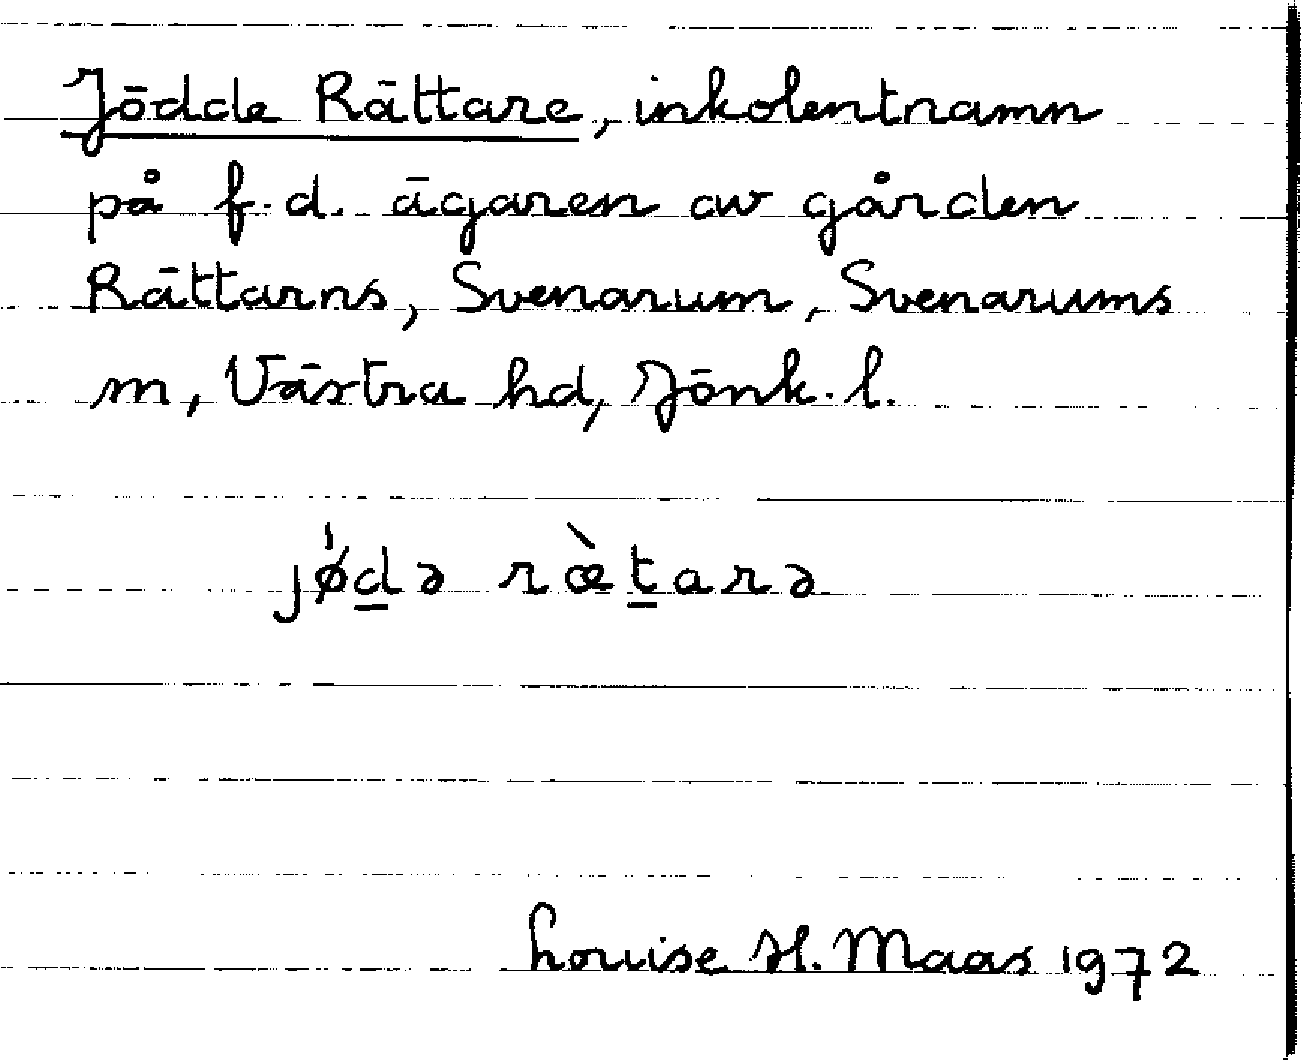 Jödde Rättare, inkolentnamn
på f.d. ägaren av gården
Rättarns, Svenarum, Svenarums
m, Västra hd, Jönk. l.
jø̍d̲ə ræ̀t̲arə
Louise H. Maas 1972